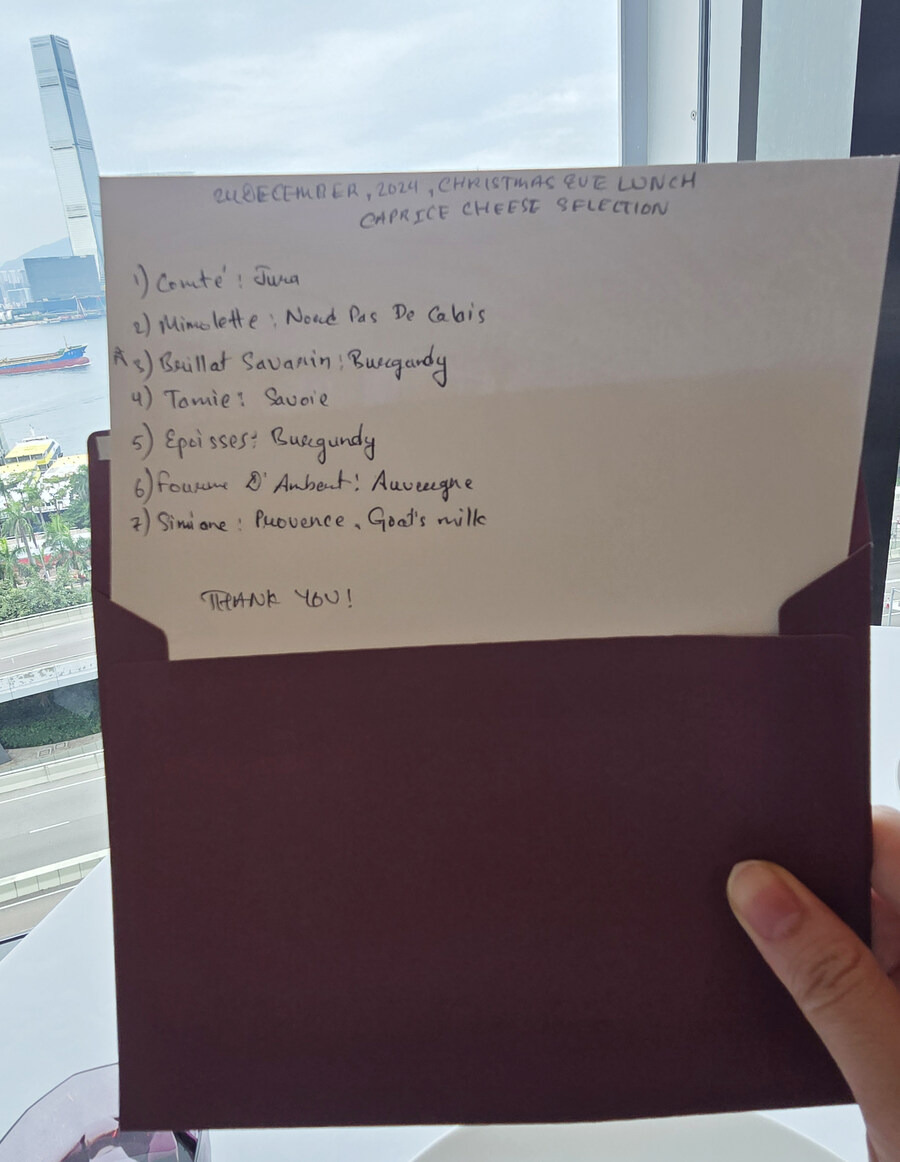 24 DECEMBER, 2024, CHRISTMAS EVE LUNCH
CAPRICE CHEESE SELECTION
1) Comté : Jura
2) Mimolette : Nord Pas De Calais
3) Brillat Savarin : Burgundy
4) Tomie : Savoie
5) Epoisses : Burgundy
6) Fourme D'Ambert : Auvergne
7) Simiane : Provence, Goat's milk
THANK YOU!